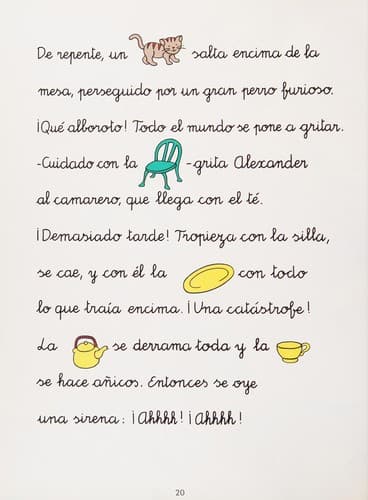 De repente, un salta encima de la
mesa, perseguido por un gran perro furioso.
¡Qué alboroto! Todo el mundo se pone a gritar.
-Cuidado con la -grita Alexander
al camarero, que llega con el té.
¡Demasiado tarde! Tropieza con la silla,
se cae, y con él la con todo
lo que traía encima. ¡Una catástrofe!
La se derrama toda y la
se hace añicos. Entonces se oye
una sirena: ¡Ahhhh! ¡Ahhhh!
20